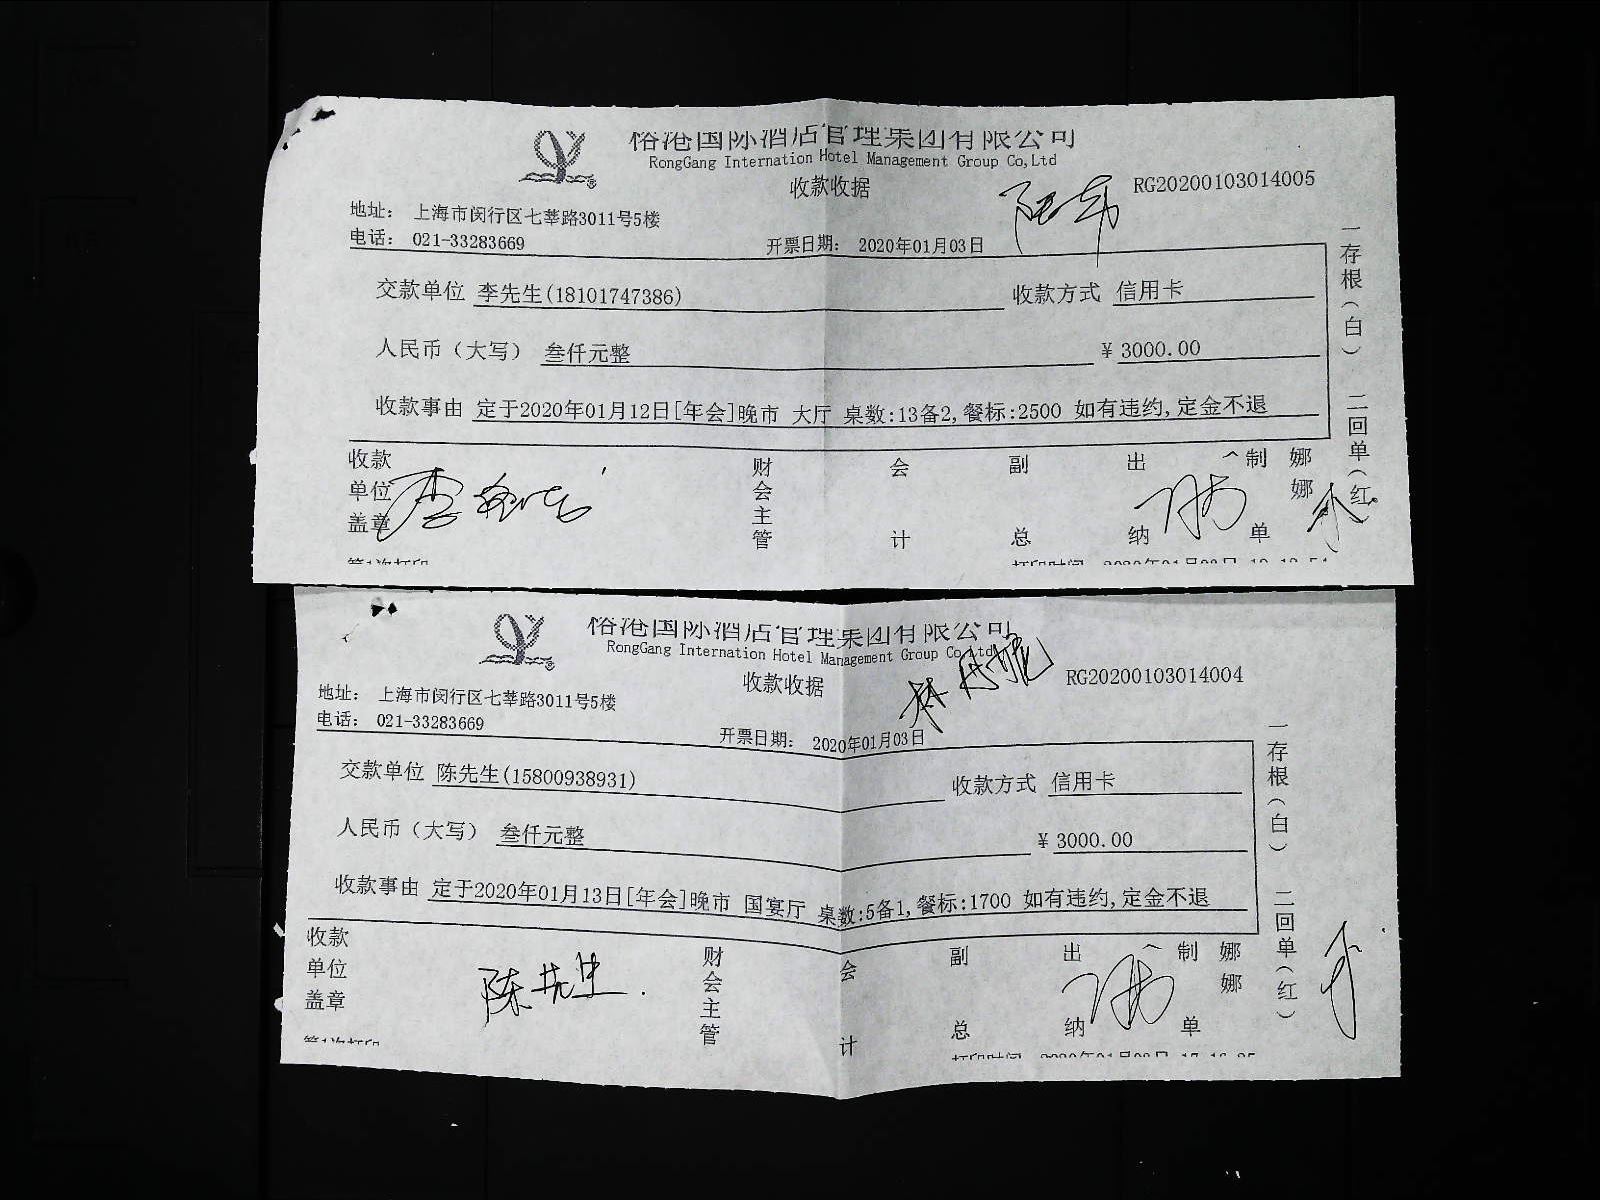 榕港国际酒店管理集团有限公司
RongGang Internation Hotel Management Group Co,Ltd
收款收据
RG20200103014005
地址： 上海市闵行区七莘路3011号5楼
电话： 021-33283669
开票日期： 2020年01月03日
交款单位 李先生(18101747386) 收款方式 信用卡
人民币（大写） 叁仟元整 ¥ 3000.00
收款事由 定于2020年01月12日[年会]晚市 大厅 桌数:13备2,餐标:2500 如有违约,定金不退
收款单位盖章 财会主管 会计 副总 出纳 制单 娜娜
一存根（白） 二回单（红）
第1次打印
打印时间
榕港国际酒店管理集团有限公司
RongGang Internation Hotel Management Group Co,Ltd
收款收据
RG20200103014004
地址： 上海市闵行区七莘路3011号5楼
电话： 021-33283669
开票日期： 2020年01月03日
交款单位 陈先生(15800938931) 收款方式 信用卡
人民币（大写） 叁仟元整 ¥ 3000.00
收款事由 定于2020年01月13日[年会]晚市 国宴厅 桌数:5备1,餐标:1700 如有违约,定金不退
收款单位盖章 陈先生 财会主管 会计 副总 出纳 制单 娜娜
一存根（白） 二回单（红）
第1次打印
打印时间